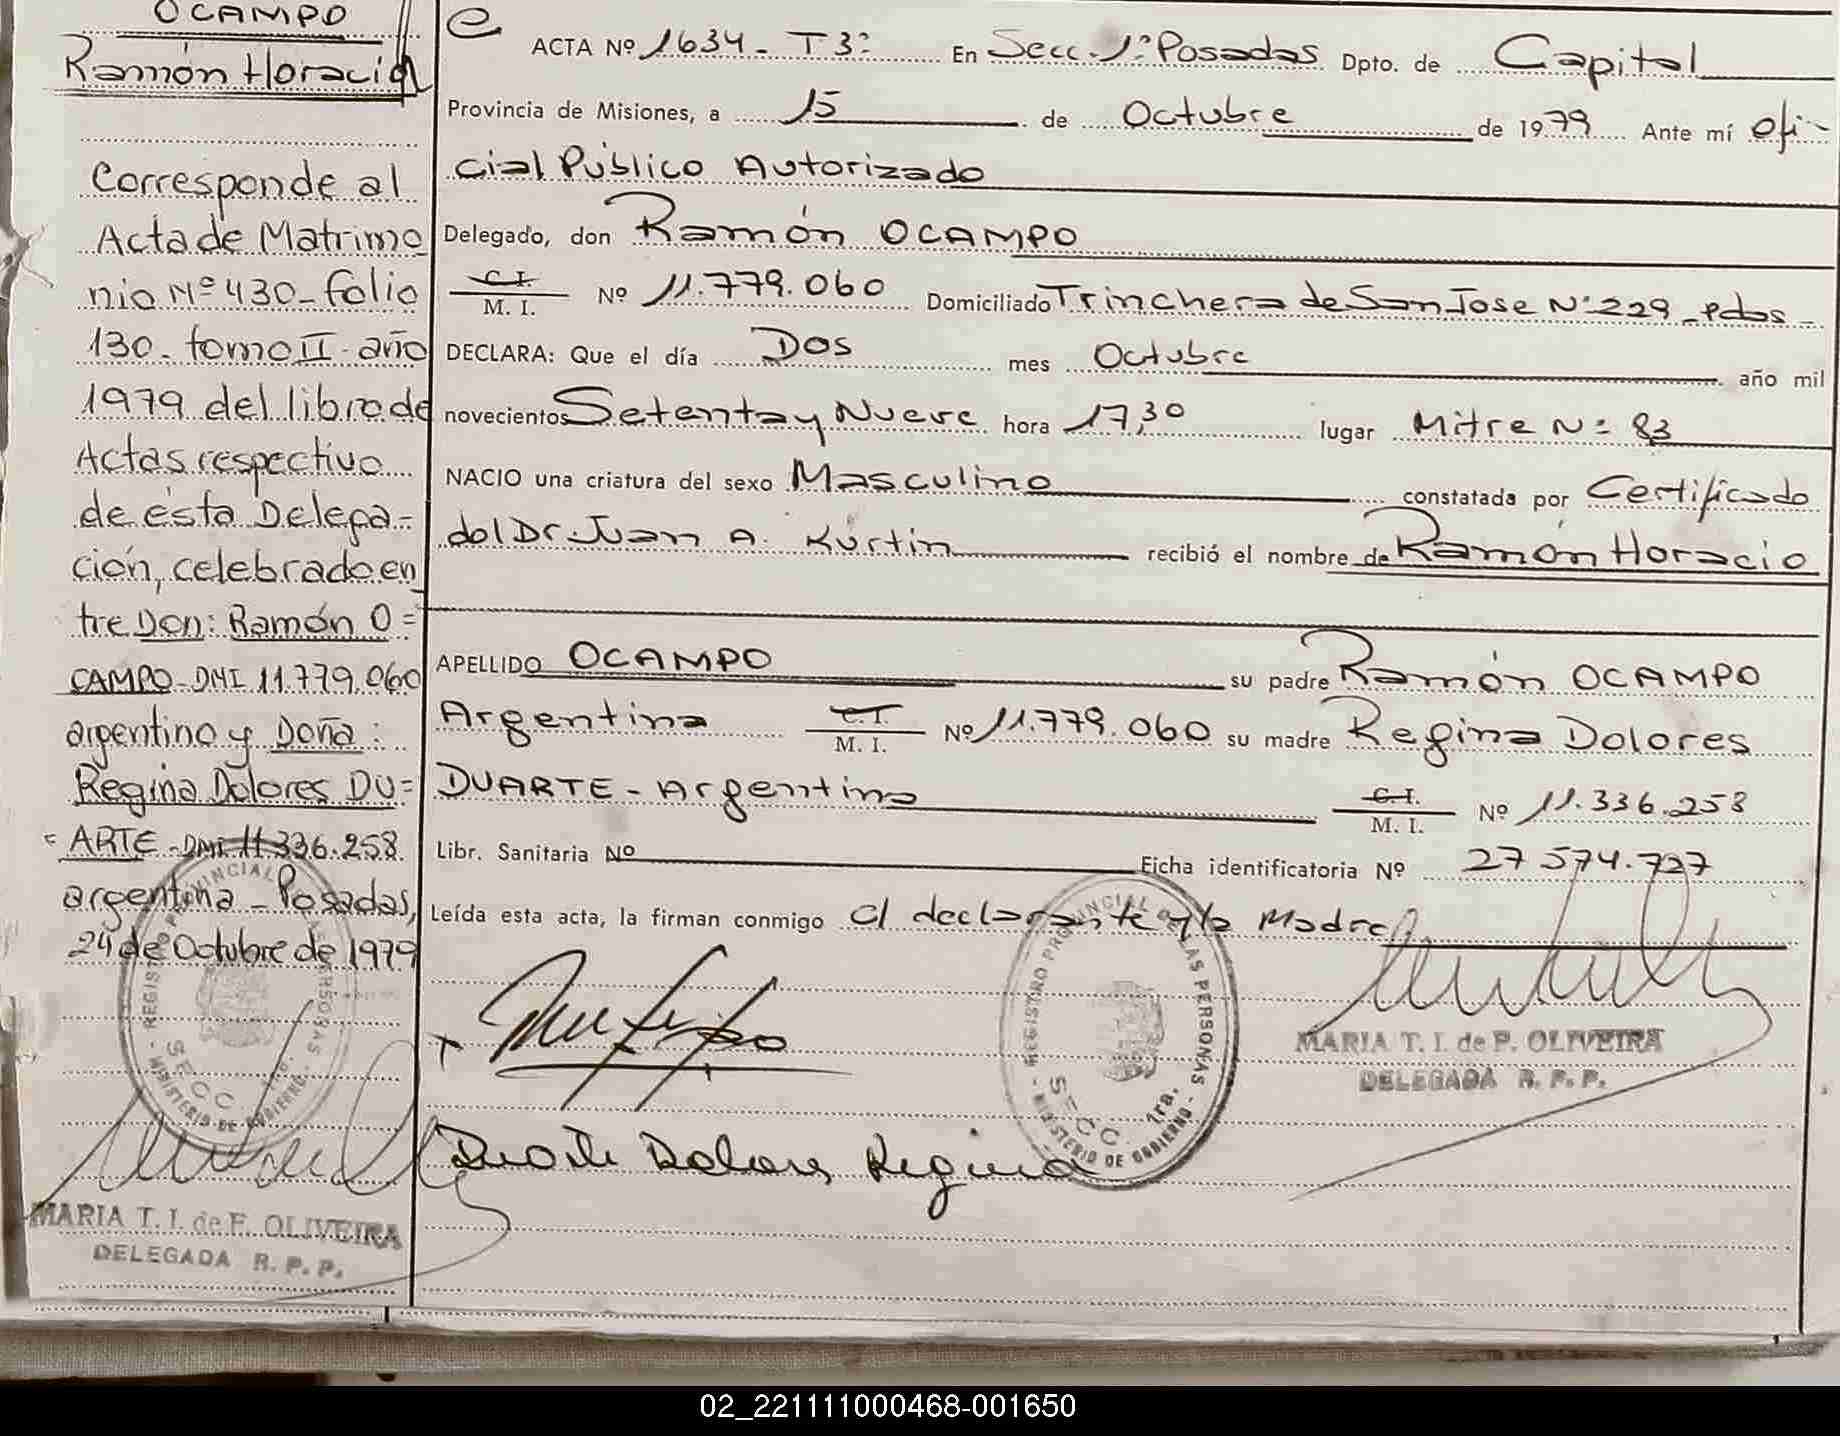 OCAMPO
Ramón Horacio
Corresponde al
Acta de Matrimo
nio Nº 430_ folio
130_ tomo II - año
1979 del libro de
Actas respectivo
de ésta Delega-
ción, celebrado en
tre Don: Ramón O=
CAMPO-DNI 11.779.060
argentino y Doña:
Regina Dolores DU=
=ARTE-DNI 11.336.258.
argentina _ Posadas,
24 de Octubre de 1979
REGISTRO PROVINCIAL DE LAS PERSONAS
SECC 1ra.
- MINISTERIO DE GOBIERNO -
MARIA T. I. de F. OLIVEIRA
DELEGADA R. P. P.
ACTA Nº 1634_ T 3º En Secc. 1º Posadas Dpto. de Capital
Provincia de Misiones, a 15 de Octubre de 1979 Ante mí Ofi-
cial Público Autorizado
Delegado, don Ramón OCAMPO
C.I. M. I. Nº 11.779.060 Domiciliado Trinchera de San Jose Nº 229_ Pdas_
DECLARA: Que el día Dos mes Octubre año mil
novecientos Setenta y Nueve hora 17,30 lugar Mitre Nº 83
NACIO una criatura del sexo Masculino constatada por Certificado
del Dr. Juan A. Kúrtin recibió el nombre de Ramón Horacio
APELLIDO OCAMPO su padre Ramón OCAMPO
Argentino C.I. M. I. Nº 11.779.060 su madre Regina Dolores
DUARTE - Argentina C.I. M. I. Nº 11.336.258
Libr. Sanitaria Nº Ficha identificatoria Nº 27 574.727
Leída esta acta, la firman conmigo el declarante y la Madre
REGISTRO PROVINCIAL DE LAS PERSONAS
SECC 1ra.
- MINISTERIO DE GOBIERNO -
MARIA T. I. de P. OLIVEIRA
DELEGADA R. P. P.
Duarte Dolores Regina
02_221111000468-001650